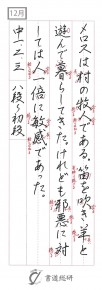 12月
メロスは村の牧人である。笛を吹き羊と
遊んで暮らしてきた。けれども邪悪に対
しては人一倍に敏感であった。
中一、二、三 八段〜初段
書道総研